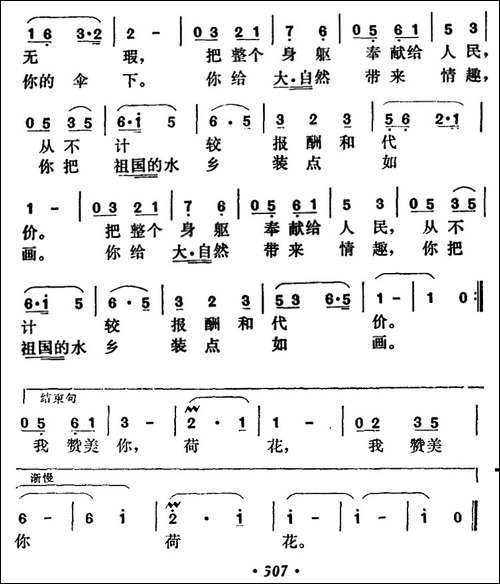 1 6 3·2 | 2 - | 0 3 2 1 | 7 6 | 0 5 6 1 | 5 3 |
无 瑕, 把 整个 身 躯 奉 献给 人 民,
你的 伞 下。 你 给 大·自然 带 来 情 趣,
0 5 3 5 | 6·i 5 | 6·5 | 3 2 3 | 5 6 2·1 |
从 不 计 较 报 酬 和 代
你 把 祖国的水 乡 装 点 如
1 - | 0 3 2 1 | 7 6 | 0 5 6 1 | 5 3 | 0 5 3 5 |
价。 把 整个 身 躯 奉 献给 人 民, 从 不
画。 你 给 大·自然 带 来 情 趣, 你 把
6·i 5 | 6·5 | 3 2 3 | 5 3 6·5 | 1 - | 1 0 :||
计 较 报 酬 和 代 价。
祖国的水 乡 装 点 如 画。
结束句
0 5 6 1 | 3 - | 2·1 | 1 - | 0 2 3 5 |
我 赞美 你, 荷 花, 我 赞美
渐慢
6 - | 6 i | 2·i | i - | i - | i 0 ||
你 荷 花。
·307·